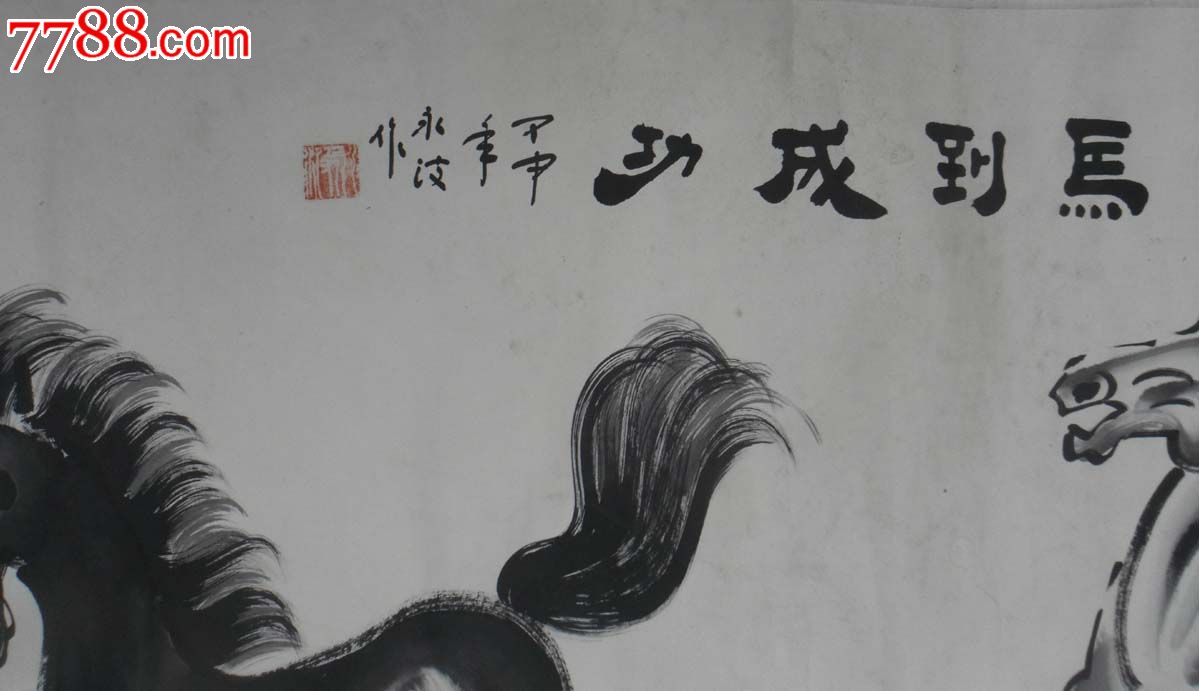 7788.com
馬到成功
年
永
作